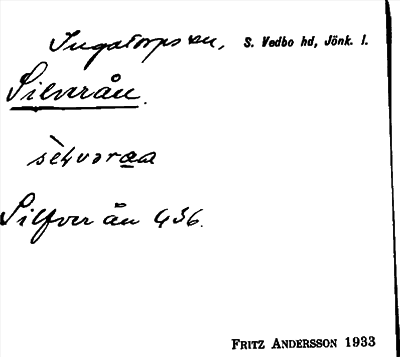 Ingatorps sn, S. Vedbo hd, Jönk. l.
Silverån.
Silfver ån 436.
FRITZ ANDERSSON 1933